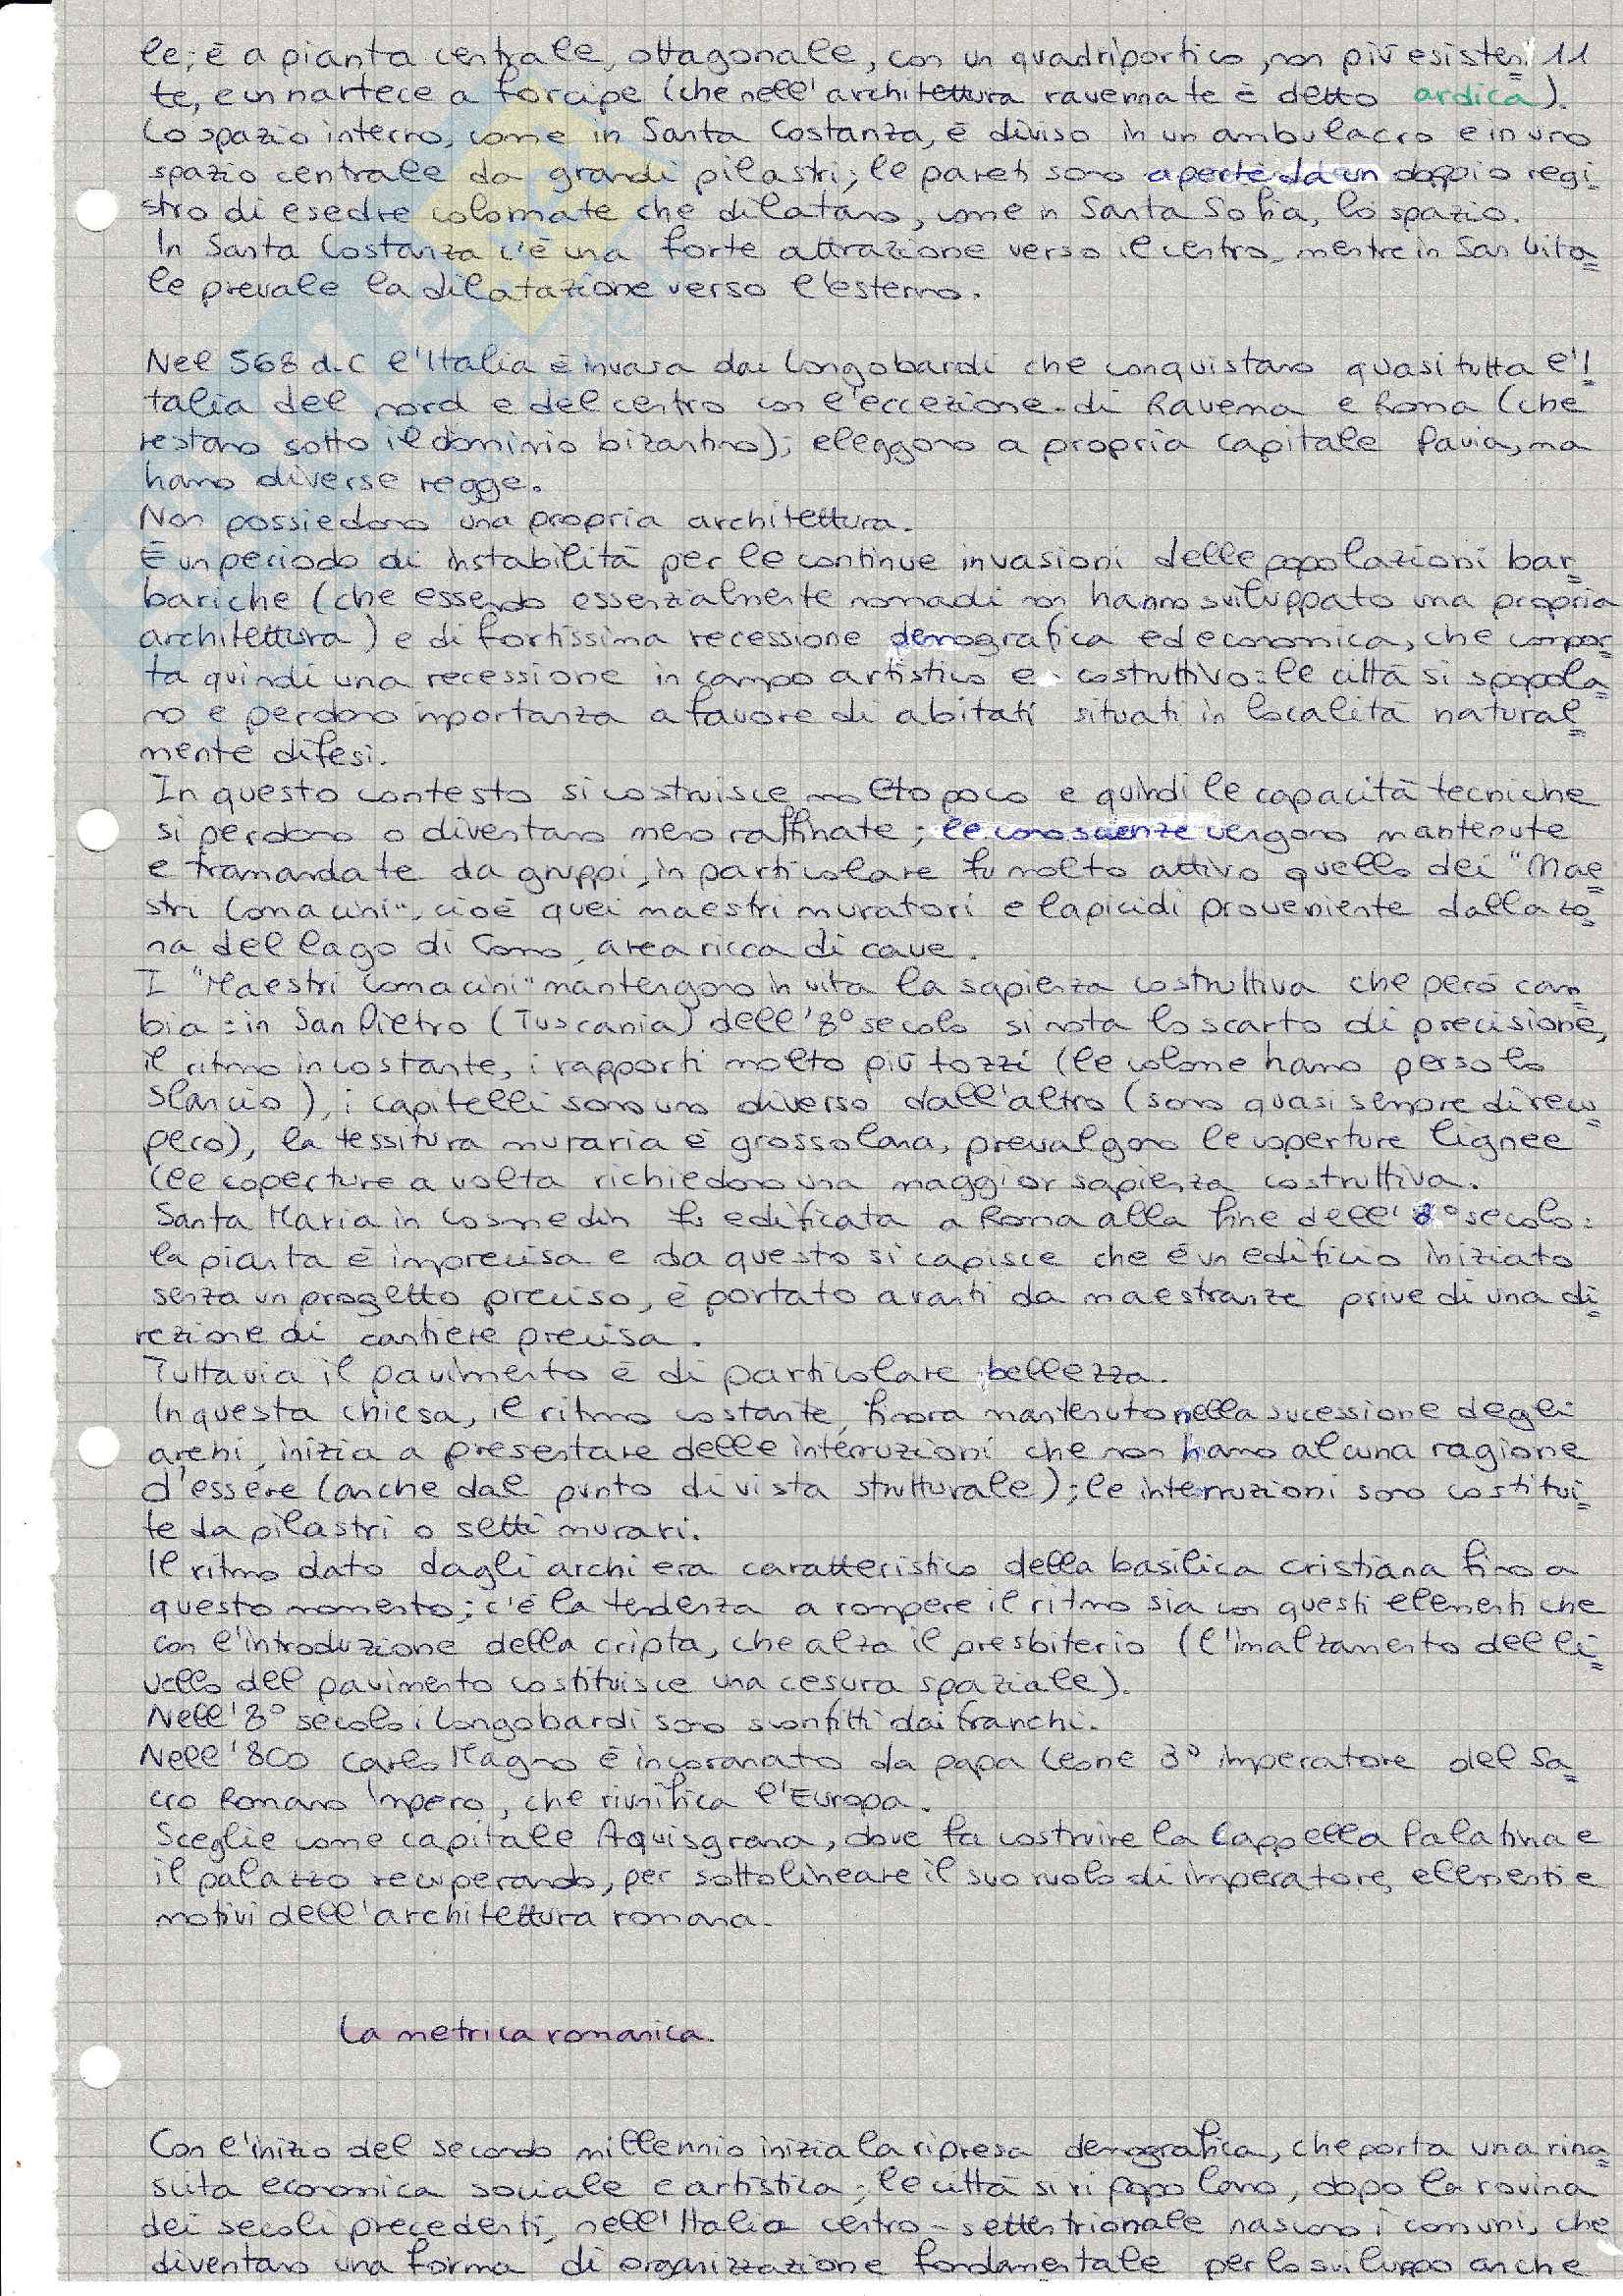 le; è a pianta centrale, ottagonale, con un quadriportico, non più esisten 11
te, e un nartece a forcipe (che nell'architettura ravennate è detto ardica).
Lo spazio interno, come in Santa Costanza, è diviso in un ambulacro e in uno
spazio centrale da grandi pilastri; le pareti sono aperte da un doppio regi
stro di esedre colonnate che dilatano, come in Santa Sofia, lo spazio.
In Santa Costanza c'è una forte attrazione verso il centro, mentre in San Vita=
le prevale la dilatazione verso l'esterno.
Nel 568 d.C l'Italia è invasa dai Longobardi che conquistano quasi tutta l'I
talia del nord e del centro con l'eccezione di Ravenna e Roma (che
restano sotto il dominio bizantino); eleggono a propria capitale Pavia, ma
hanno diverse regge.
Non possiedono una propria architettura.
È un periodo di instabilità per le continue invasioni delle popolazioni bar=
bariche (che essendo essenzialmente nomadi non hanno sviluppato una propria
architettura) e di fortissima recessione demografica ed economica, che compor=
ta quindi una recessione in campo artistico e costruttivo: le città si spopola=
no e perdono importanza a favore di abitati situati in località natural=
mente difesi.
In questo contesto si costruisce molto poco e quindi le capacità tecniche
si perdono o diventano meno raffinate; le conoscenze vengono mantenute
e tramandate da gruppi, in particolare fu molto attivo quello dei "Mae=
stri Comacini", cioè quei maestri muratori e lapicidi proveniente dalla zo=
na del lago di Como, area ricca di cave.
I "Maestri Comacini" mantengono in vita la sapienza costruttiva che però cam=
bia: in San Pietro (Tuscania) dell'8° secolo si nota lo scarto di precisione,
il ritmo incostante, i rapporti molto più tozzi (le colonne hanno perso lo
slancio), i capitelli sono uno diverso dall'altro (sono quasi sempre di recu=
pero), la tessitura muraria è grossolana, prevalgono le coperture lignee
(le coperture a volta richiedono una maggior sapienza costruttiva.
Santa Maria in Cosmedin fu edificata a Roma alla fine dell'8° secolo:
la pianta è imprecisa e da questo si capisce che è un edificio iniziato
senza un progetto preciso, è portato avanti da maestranze prive di una di=
rezione di cantiere precisa.
Tuttavia il pavimento è di particolare bellezza.
In questa chiesa, il ritmo costante, finora mantenuto nella sucessione degli
archi, inizia a presentare delle interruzioni che non hanno alcuna ragione
d'essere (anche dal punto di vista strutturale); le interruzioni sono costitui=
te da pilastri o setti murari.
Il ritmo dato dagli archi era caratteristico della basilica cristiana fino a
questo momento; c'è la tendenza a rompere il ritmo sia con questi elementi che
con l'introduzione della cripta, che alza il presbiterio (l'innalzamento del li=
vello del pavimento costituisce una cesura spaziale).
Nell'8° secolo i Longobardi sono sconfitti dai franchi.
Nell'800 Carlo Magno è incoranato da papa Leone 3° imperatore del Sa=
cro Romano Impero, che riunifica l'Europa.
Sceglie come capitale Aquisgrana, dove fa costruire la Cappella Palatina e
il palazzo recuperando, per sottolineare il suo ruolo di imperatore, elementi e
motivi dell'architettura romana.
La metrica romanica.
Con l'inizio del secondo millennio inizia la ripresa demografica, che porta una rina=
scita economica sociale e artistica; le città si ripopolano, dopo la rovina
dei secoli precedenti, nell'Italia centro-settentrionale nascono i comuni, che
diventano una forma di organizzazione fondamentale per lo sviluppo anche